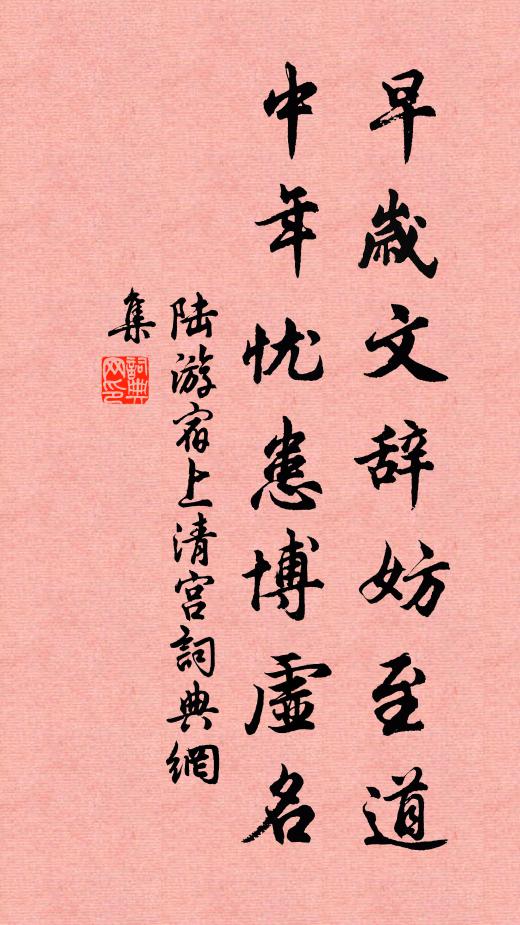 早歲文辞妨至道
中年忧患博虛名
陆游宿上清宫詞典網
集
詞典
网印